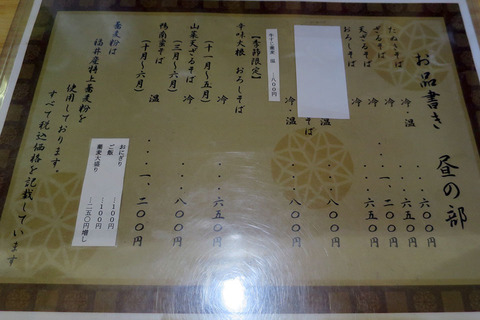 お品書き 昼の部
たぬきそば 温 ・・・六〇〇円
ざるそば 冷 ・・・六五〇円
天ざるそば 冷
おろしそば ・・・六五〇円
そば
冷・温 ・・・八〇〇円
【季節限定】
辛味大根 おろしそば
（十一月～五月） 冷 ・・・六五〇円
山菜天ざるそば
（三月～六月） 冷 ・・・八〇〇円
鴨南蛮そば
（十月～六月） 温 ・・・一、二〇〇円
おにぎり …一〇〇円
ご飯 …一〇〇円
蕎麦大盛り …二五〇円増し
蕎麦粉は
福井産特上蕎麦粉を
使用しております。
すべて税込価格を記載しています